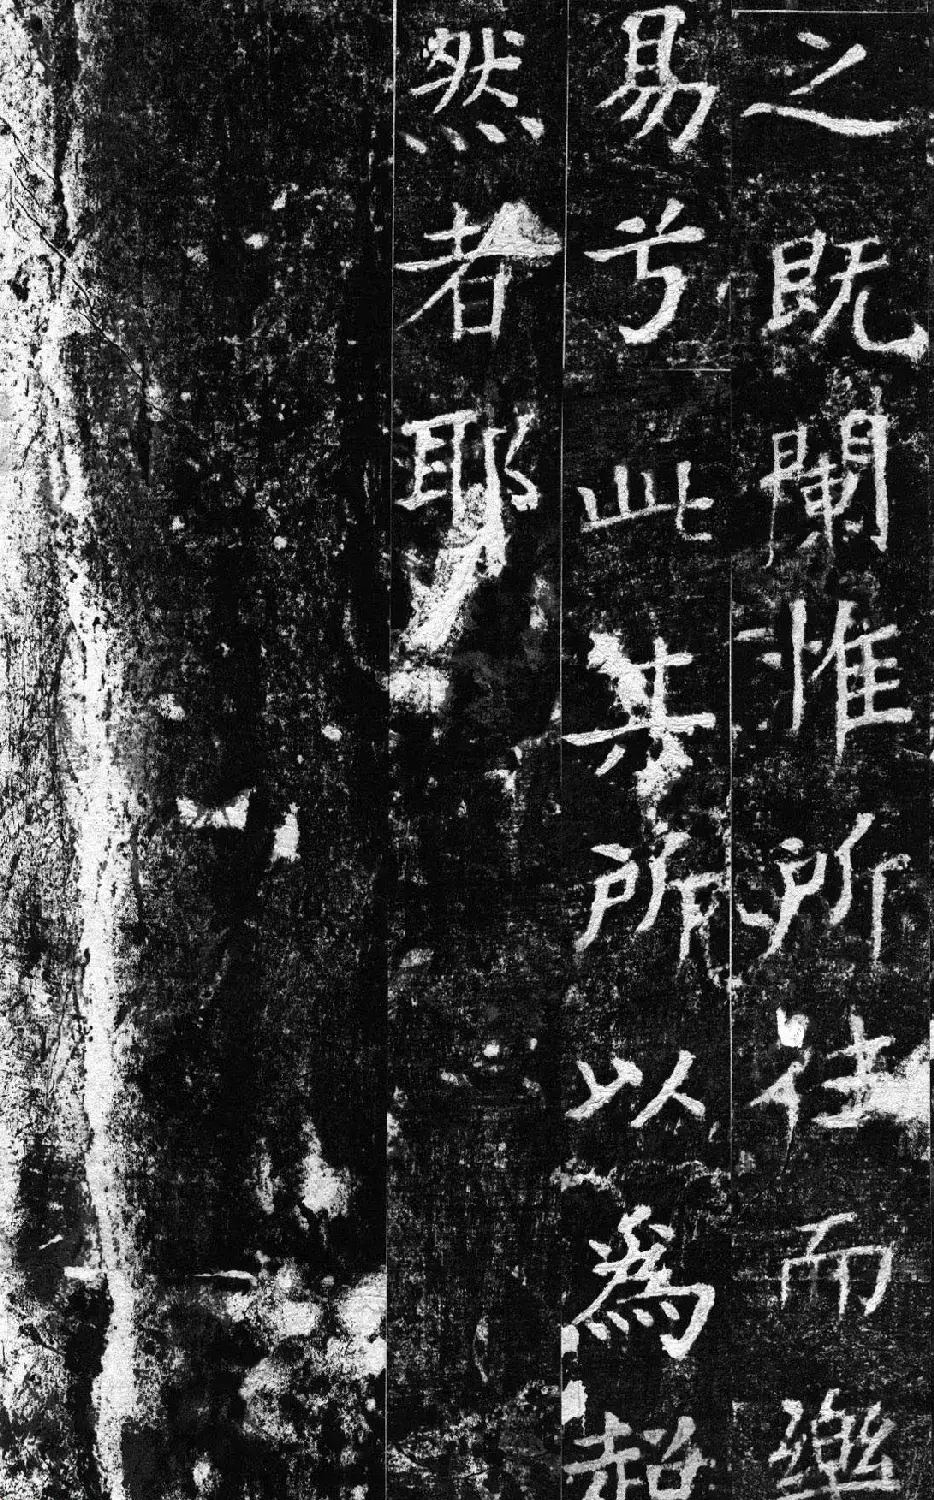 之既闌惟所往而樂
易兮此其所以為超
然者耶